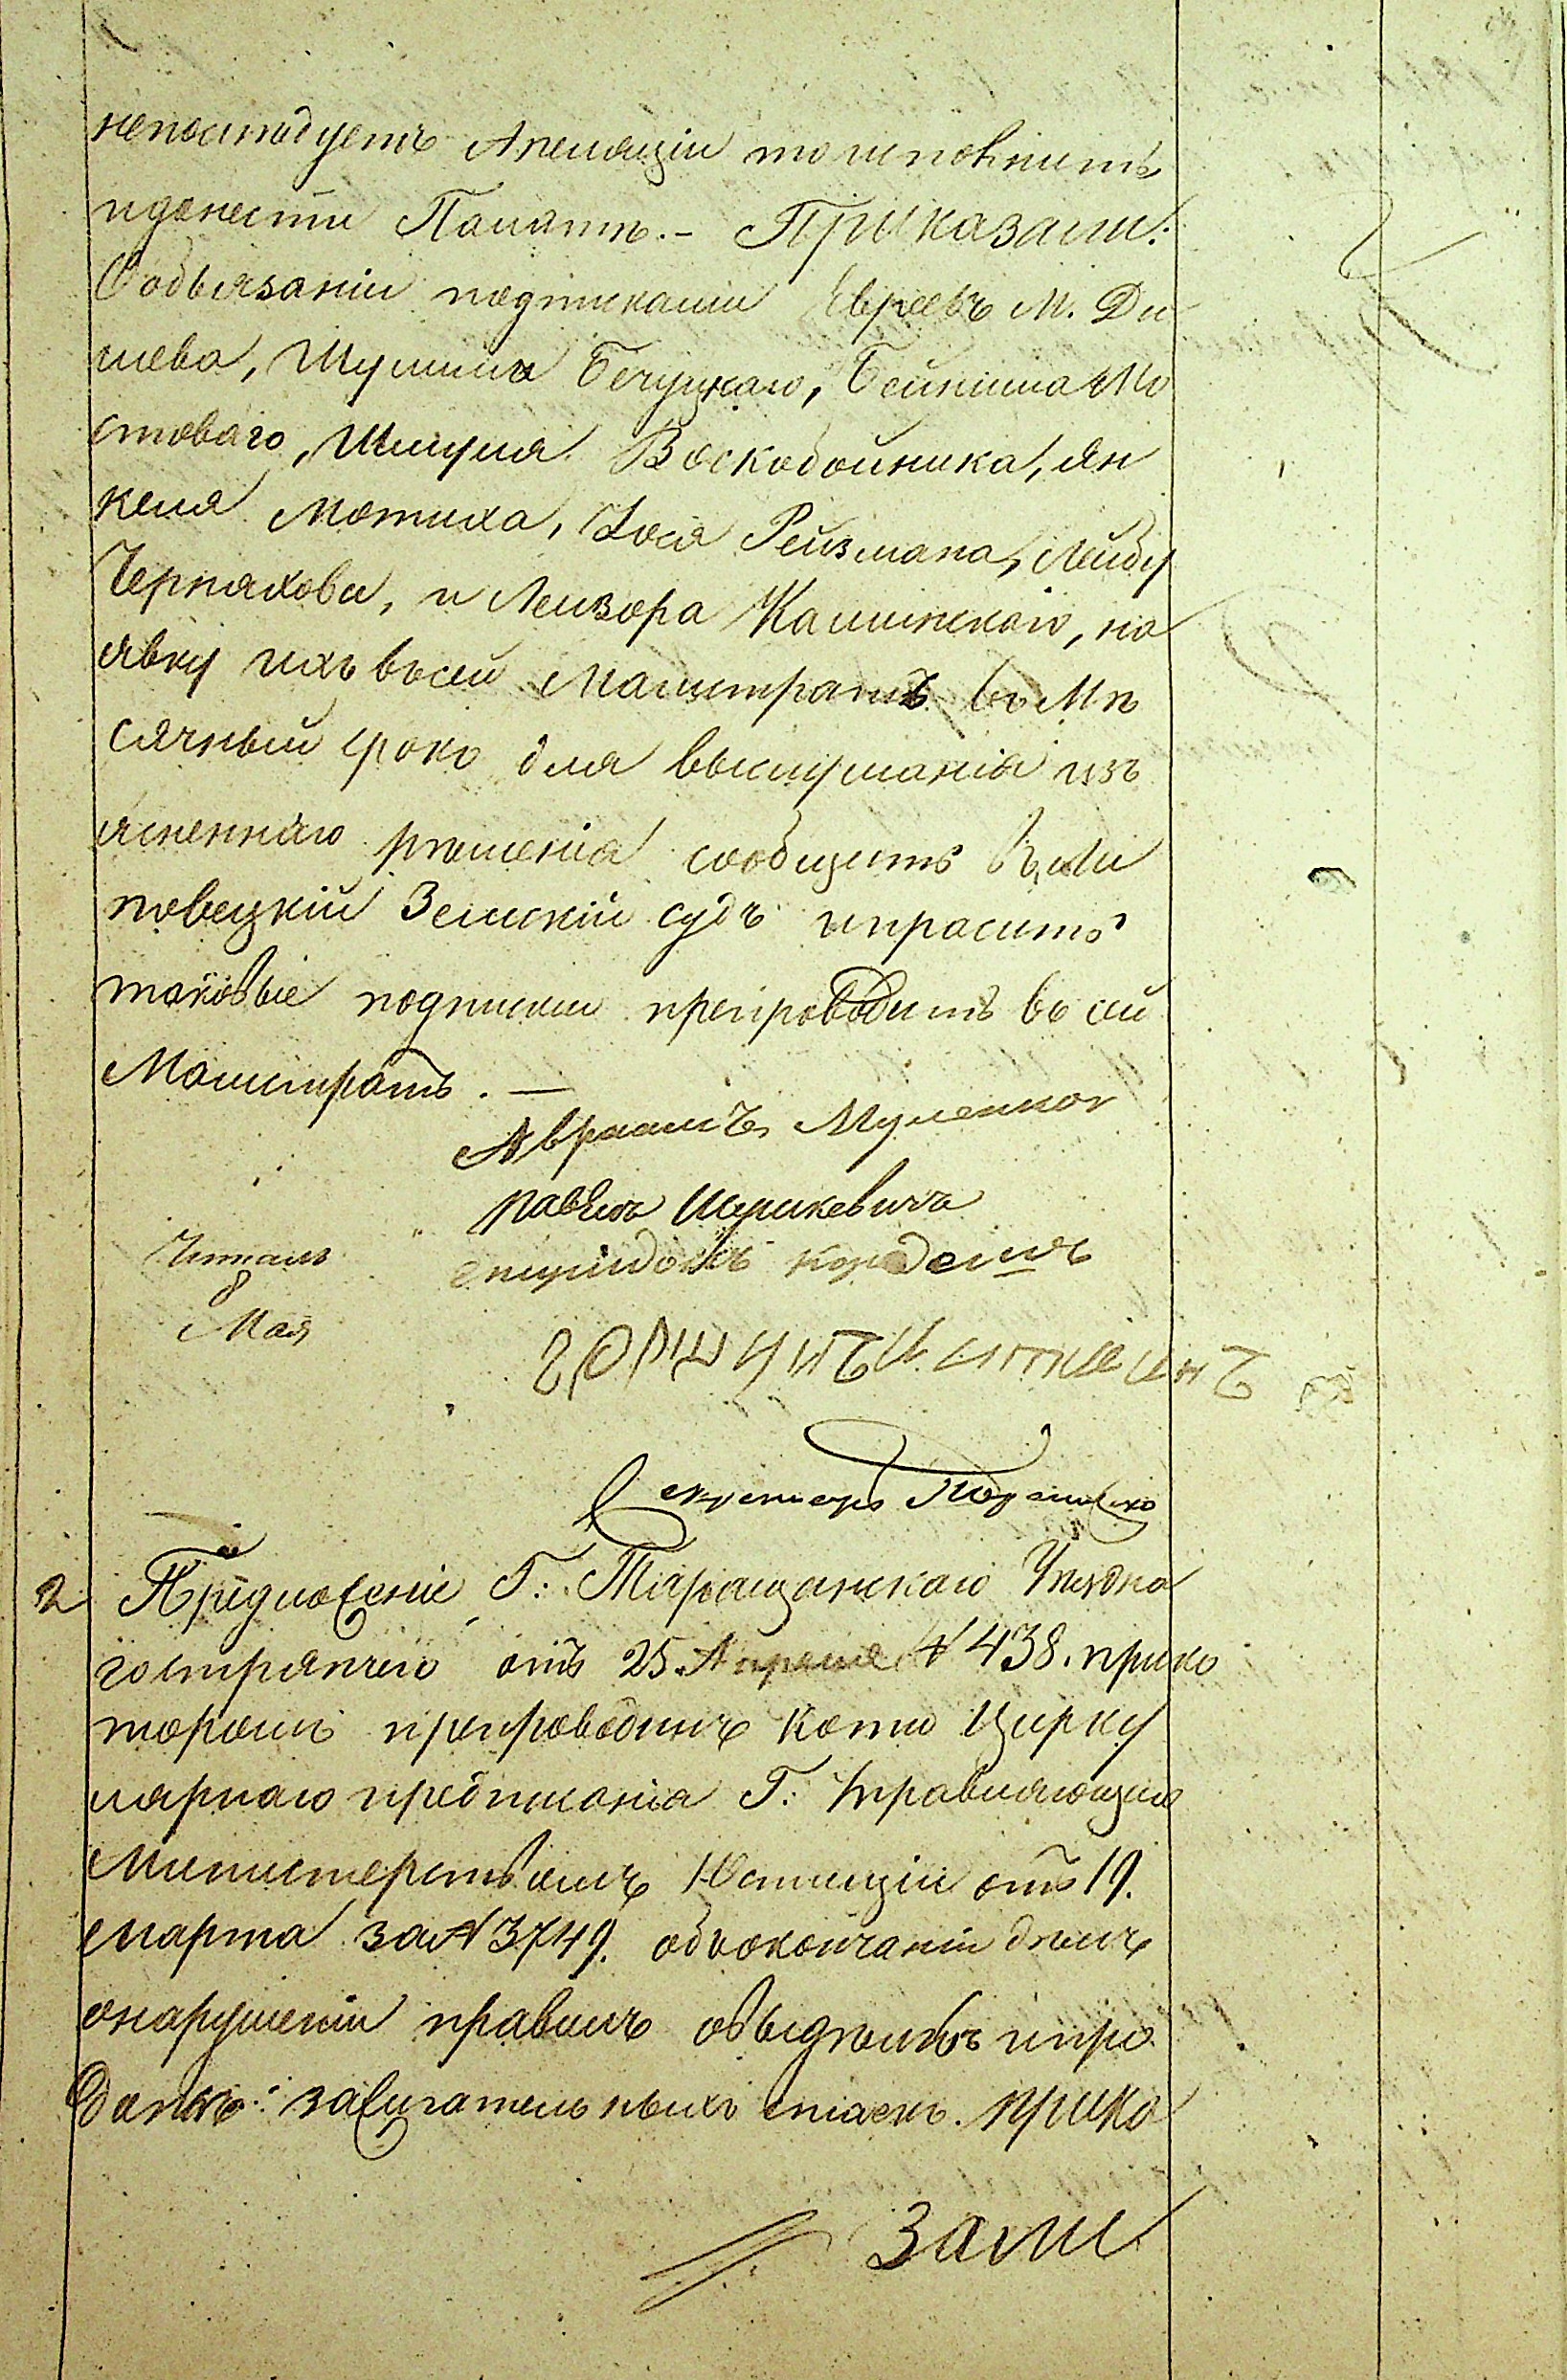 непоследуетъ Апеляціи то исполнить
идонести Палатѣ. - Приказали:
Ообязаніи подписками Евреевъ М. Ди
шева, Шулима Бечуцкаго, Бейниша Мо
стоваго, Шмуля Воскобойника, Ян
келя Мотиха, Іося Рейзмана, Лейбу
Чернахова, и Лейзора Калинскаго, на
явку ихъ въсей Магистратъ въ Мѣ
сячный срокъ для выслушанія изъ
ясненнаго рѣшенія сообщить въ Ли
повецкій Земскій судъ ипросить
таковые подписки препроводить въ сей
Магистратъ. —
Авраамъ
Павелъ
Спиридонъ
Читалъ
8
Мая
Секретарь
2 Предложеніе Г: Таращанскаго Уѣздна
гострянчего отъ 25 Апреля № 438. прико
торомъ препроводилъ копію Цирку
лярнаго предписанія Г: Управляющаго
Министерствомъ Юстиціи отъ 19.
марта за № 3749. обокончаніи дѣлъ
онарушеніи правилъ овыдѣлкѣ ипро
дажѣ: зажигательныхъ спичекъ. Прика
зали